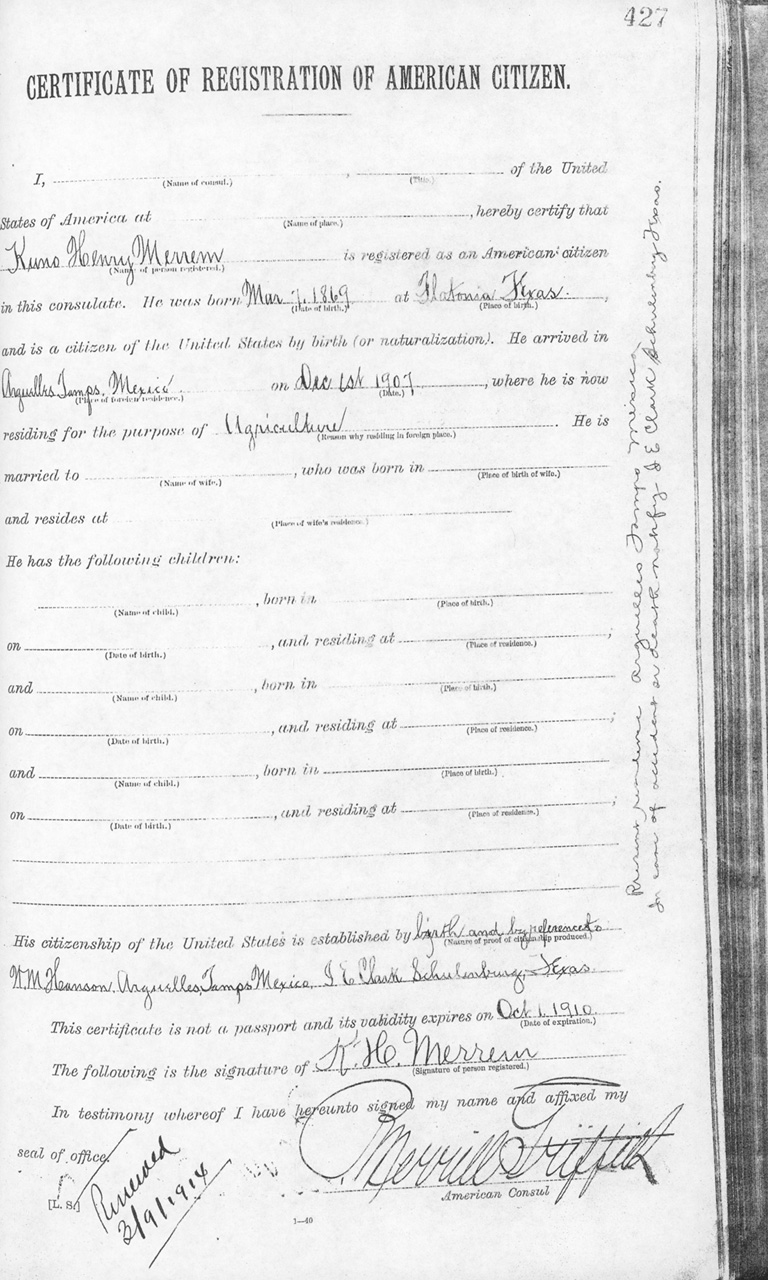 427
CERTIFICATE OF REGISTRATION OF AMERICAN CITIZEN.
I, , of the United
(Name of consul.) (Title.)
States of America at , hereby certify that
(Name of place.)
Kuno Henry Merrem is registered as an American citizen
(Name of person registered.)
in this consulate. He was born Mar 7, 1869 at Flatonia Texas. ,
(Date of birth.) (Place of birth.)
and is a citizen of the United States by birth (or naturalization). He arrived in
Arguelles Tamps. Mexico on Dec 1st 1907, where he is now
(Place of foreign residence.) (Date.)
residing for the purpose of Agriculture . He is
(Reason why residing in foreign place.)
married to , who was born in
(Name of wife.) (Place of birth of wife.)
and resides at
(Place of wife's residence.)
He has the following children:
, born in
(Name of child.) (Place of birth.)
on , and residing at ;
(Date of birth.) (Place of residence.)
and , born in
(Name of child.) (Place of birth.)
on , and residing at ;
(Date of birth.) (Place of residence.)
and , born in
(Name of child.) (Place of birth.)
on , and residing at ;
(Date of birth.) (Place of residence.)
His citizenship of the United States is established by birth and by references
(Nature of proof of citizenship produced.)
W.M. Hanson, Arguelles, Tamps Mexico, I. E. Clark Schulenburg, Texas.
This certificate is not a passport and its validity expires on Oct. 1, 1910.
(Date of expiration.)
The following is the signature of K. H. Merrem
(Signature of person registered.)
In testimony whereof I have hereunto signed my name and affixed my
seal of office.
P. Merrill Griffith
American Consul
[L. S.]
Renewed
3/9/1914
1—40
Present residence Arguelles Tamps Mexico
In case of accident or death notify I E Clark Schulenburg Texas.